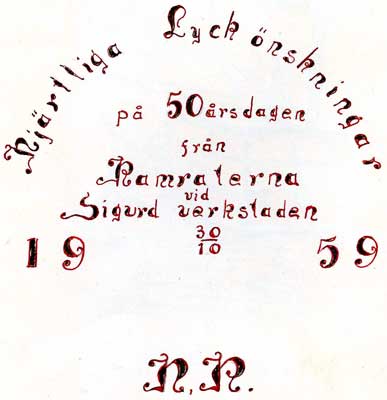 Hjärtliga Lyckönskningar
på 50 årsdagen
från
Kamraterna
vid
Sigurd verkstaden
30/10
1959
N.N.